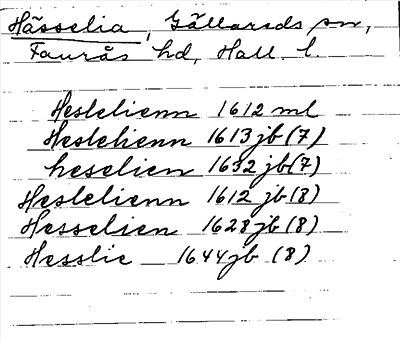 Hässelia, Gällareds sn,
Faurås hd, Hall. l.
Heslelienn 1612 ml
Heslehienn 1613 jb (7)
heselien 1632 jb (7)
Heslelienn 1612 jb (8)
Hesselien 1628 jb (8)
Hesslie 1644 jb (8)